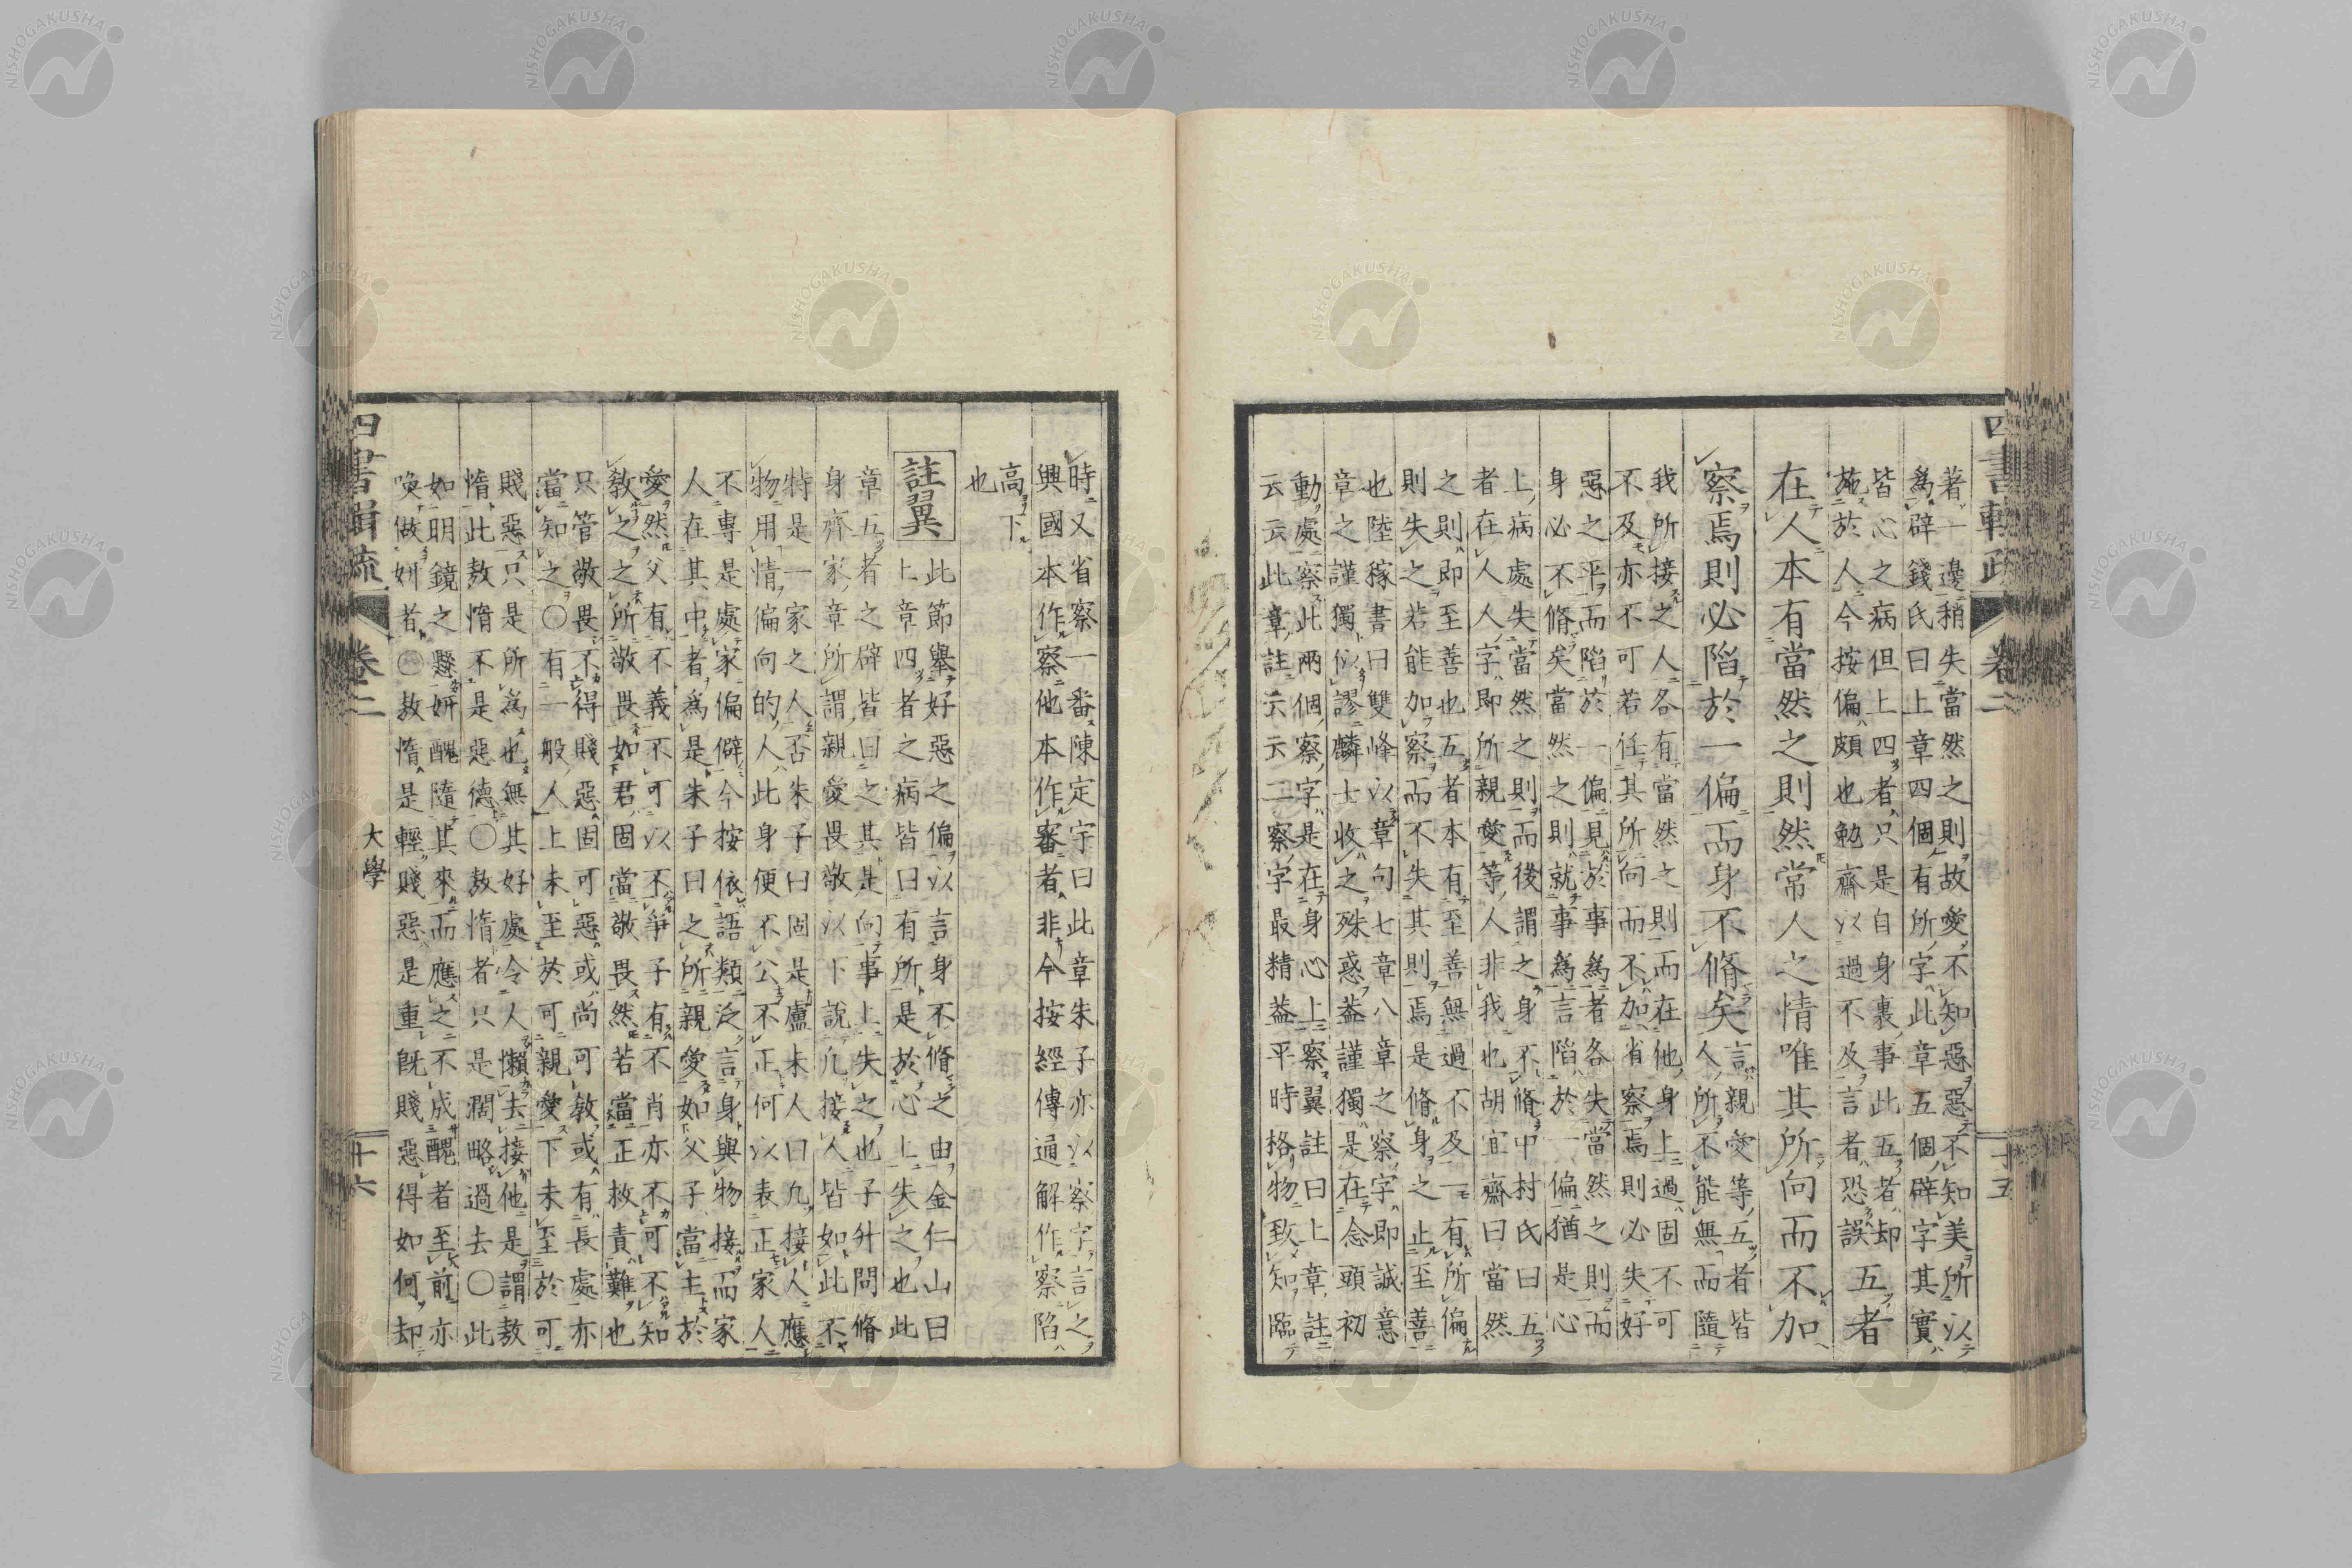 四書輯疏 卷二 十五
著一邊稍失當然之則故愛不知惡惡不知美所以
爲辟錢氏曰上章四個有所字此章五個辟字其實
皆心之病但上四者只是自身裏事此五者却
施於人今按偏頗也勉齋以過不及言者恐誤五者
在人本有當然之則然常人之情唯其所向而不加
察焉則必陷於一偏而身不脩矣言親愛等五者皆
人所不能無而隨
我所接之人各有當然之則而在他身上過固不可
不及亦不可若任其所向而不加省察焉則必失好
惡之平而陷於一偏見於事爲者各失當然之則而
身必不脩矣當然之則就事爲言陷於一偏猶是心
上病處失當然之則而後謂之身不脩中村氏曰五
者在人人字即所親愛等人非我也胡宜齋曰當然
之則即至善也五者本有至善無過不及一有所偏
則失之若能加察而不失其則焉是脩身之止至善
也陸稼書曰雙峰以章句七章八章之察字即誠意
章之謹獨似謬麟士收之殊惑蓋謹獨是在念頭初
動處察此兩個察字是在身心上察翼註曰上章註
云云此章註云云二察字最精蓋平時格物致知臨
時又省察一番陳定宇曰此章朱子亦以察字言之
興國本作察他本作審者非今按經傳通解作察陷
高下
也
註翼
此節舉好惡之偏以言身不脩之由金仁山曰
上章四者之病皆曰有所是於心上失之也此
章五者之辟皆曰之其是向事上失之也子升問脩
身齊家章所謂親愛畏敬以下說凡接人皆如此不
特是一家之人否朱子曰固是盧未人曰凡接人應
物用情偏向的人此身便不公不正何以表正家人
不專是處家偏僻今按依語類泛言身與物接而家
人在其中者爲是朱子曰之所親愛如父子當主於
愛然父有不義不可以不爭子有不肖亦不可不知
教之之所敬畏如君固當敬畏然若當正救責難也
只管敬畏不得賤惡固可惡或尚可教或有長處亦
當知之〇有一般人上未至於可親愛下未至於可
賤惡只是所爲也無其好處令人懶去接他是謂敖
惰此敖惰不是惡德〇敖惰者只是濶略過去〇此
如明鏡之懸妍醜隨其來而應之不成醜者至前亦
喚做妍者〇敖惰是輕賤惡是重既賤惡得如何却
四書輯疏 卷二 大學 十六